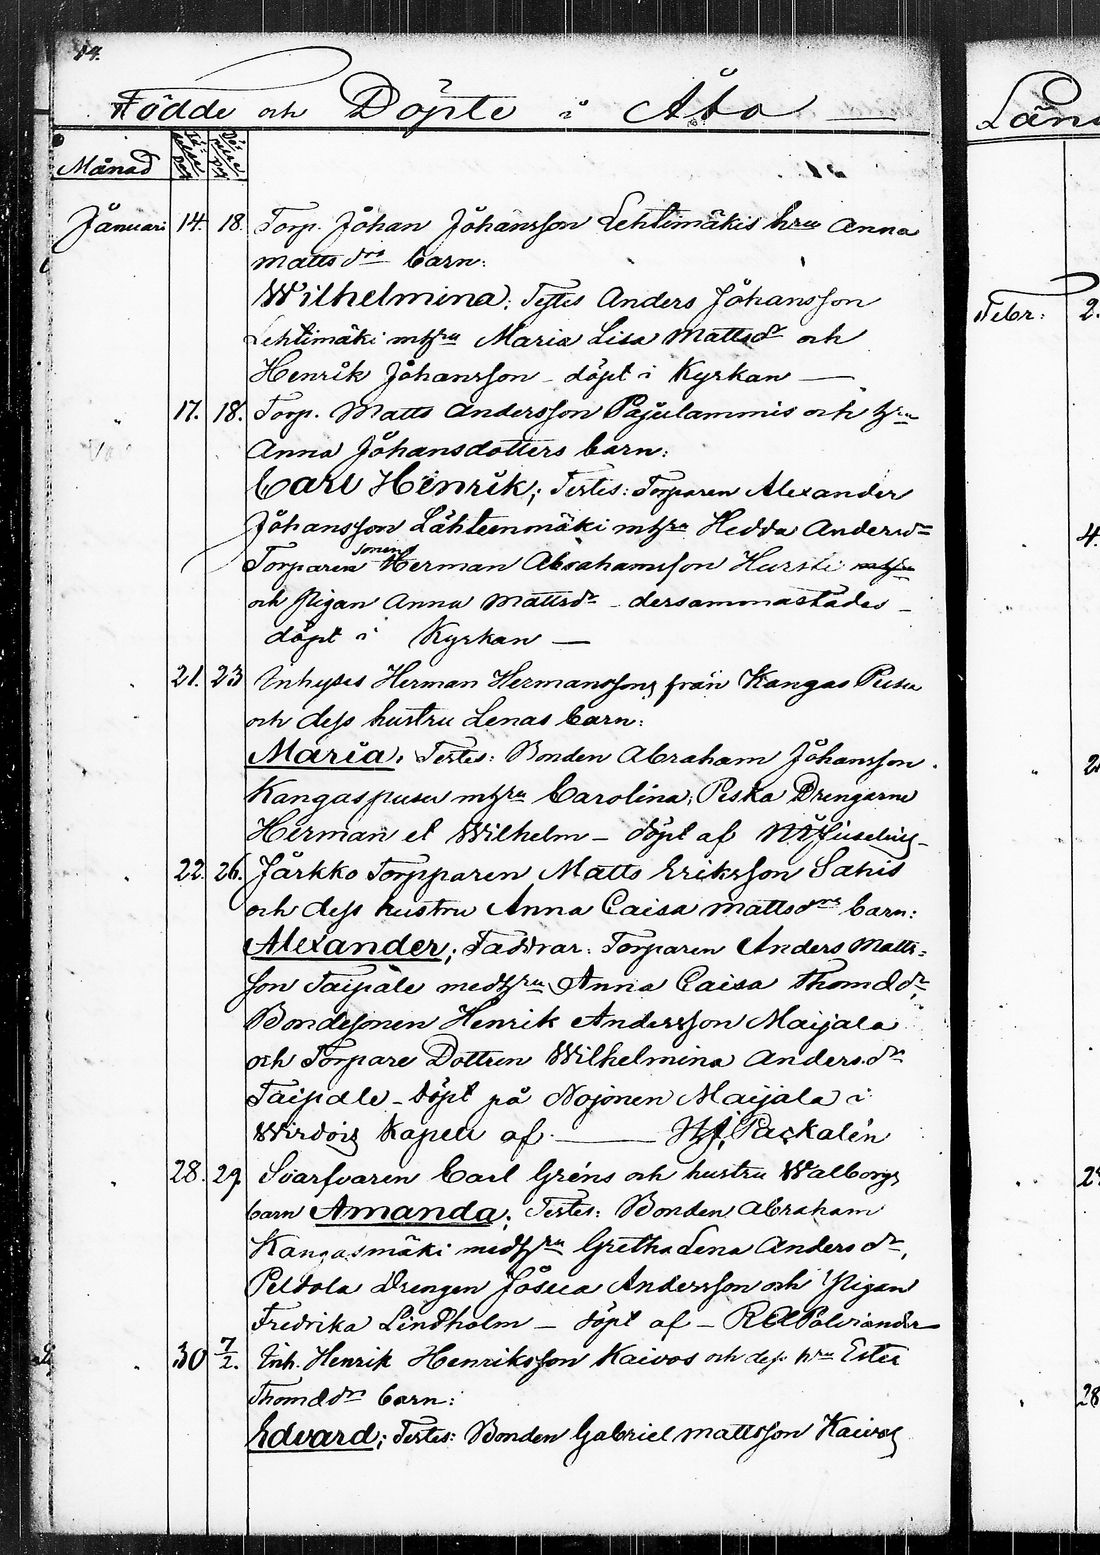 84.
Födde och Döpte i Åbo
Län
Månad
Födelse dag
Döpelse dag
Januari 14. 18. Torp. Johan Johansson Lehtimäkis hru Anna
Mattsdrs barn:
Wilhelmina; Testes Anders Johansson
Lehtimäki mhru Maria Lisa Mattsdr och
Henrik Johansson – döpt i Kyrkan —
17. 18. Torp. Matts Andersson Pajulammis och hru
Anna Johansdotters barn:
Carl Henrik; Testis: Torparen Alexander
Johansson Lähteenmäki mhru Hedda Andersdr
Torparesonen Herman Abrahamsson Hursti mhru
och Pigan Anna Mattsdr – dersammastädes –
döpt i Kyrkan —
21. 23 Inhyses Herman Hermanssons från Kangas Pusu
och dess hustru Lenas barn:
Maria. Testes: Bonden Abraham Johansson
Kangaspusu mhru Carolina; Peska Drengarne
Herman et Wilhelm – döpt af
22. 26. Jårkko Torpparen Matts Eriksson Sahis
och dess hustru Anna Caisa Mattsdrs barn:
Alexander; Faddrar: Torparen Anders Matts-
son Taipale medhru Anna Caisa Thomdr,
Bondesonen Henrik Andersson Maijala
och Torpare Dottren Wilhelmina Andersdr
Taipale – döpt på Nojonen Maijala i
Wirdois Kapell af — Packalén
28. 29 Svarfvaren Carl Gréns och hustru Walborgs
barn Amanda; Testes: Bonden Abraham
Kangasmäki medhru Gretha Lena Andersdr,
Peltola Drengen Josua Andersson och Pigan
Fredrika Lindholm – döpt af – Polviander
30 7/2. Inh. Henrik Henriksson Kaivos och dess hru Ester
Thomdrs barn:
Edvard; Testes: Bonden Gabriel Mattsson Kaivos
Febr: 2.
4.
28